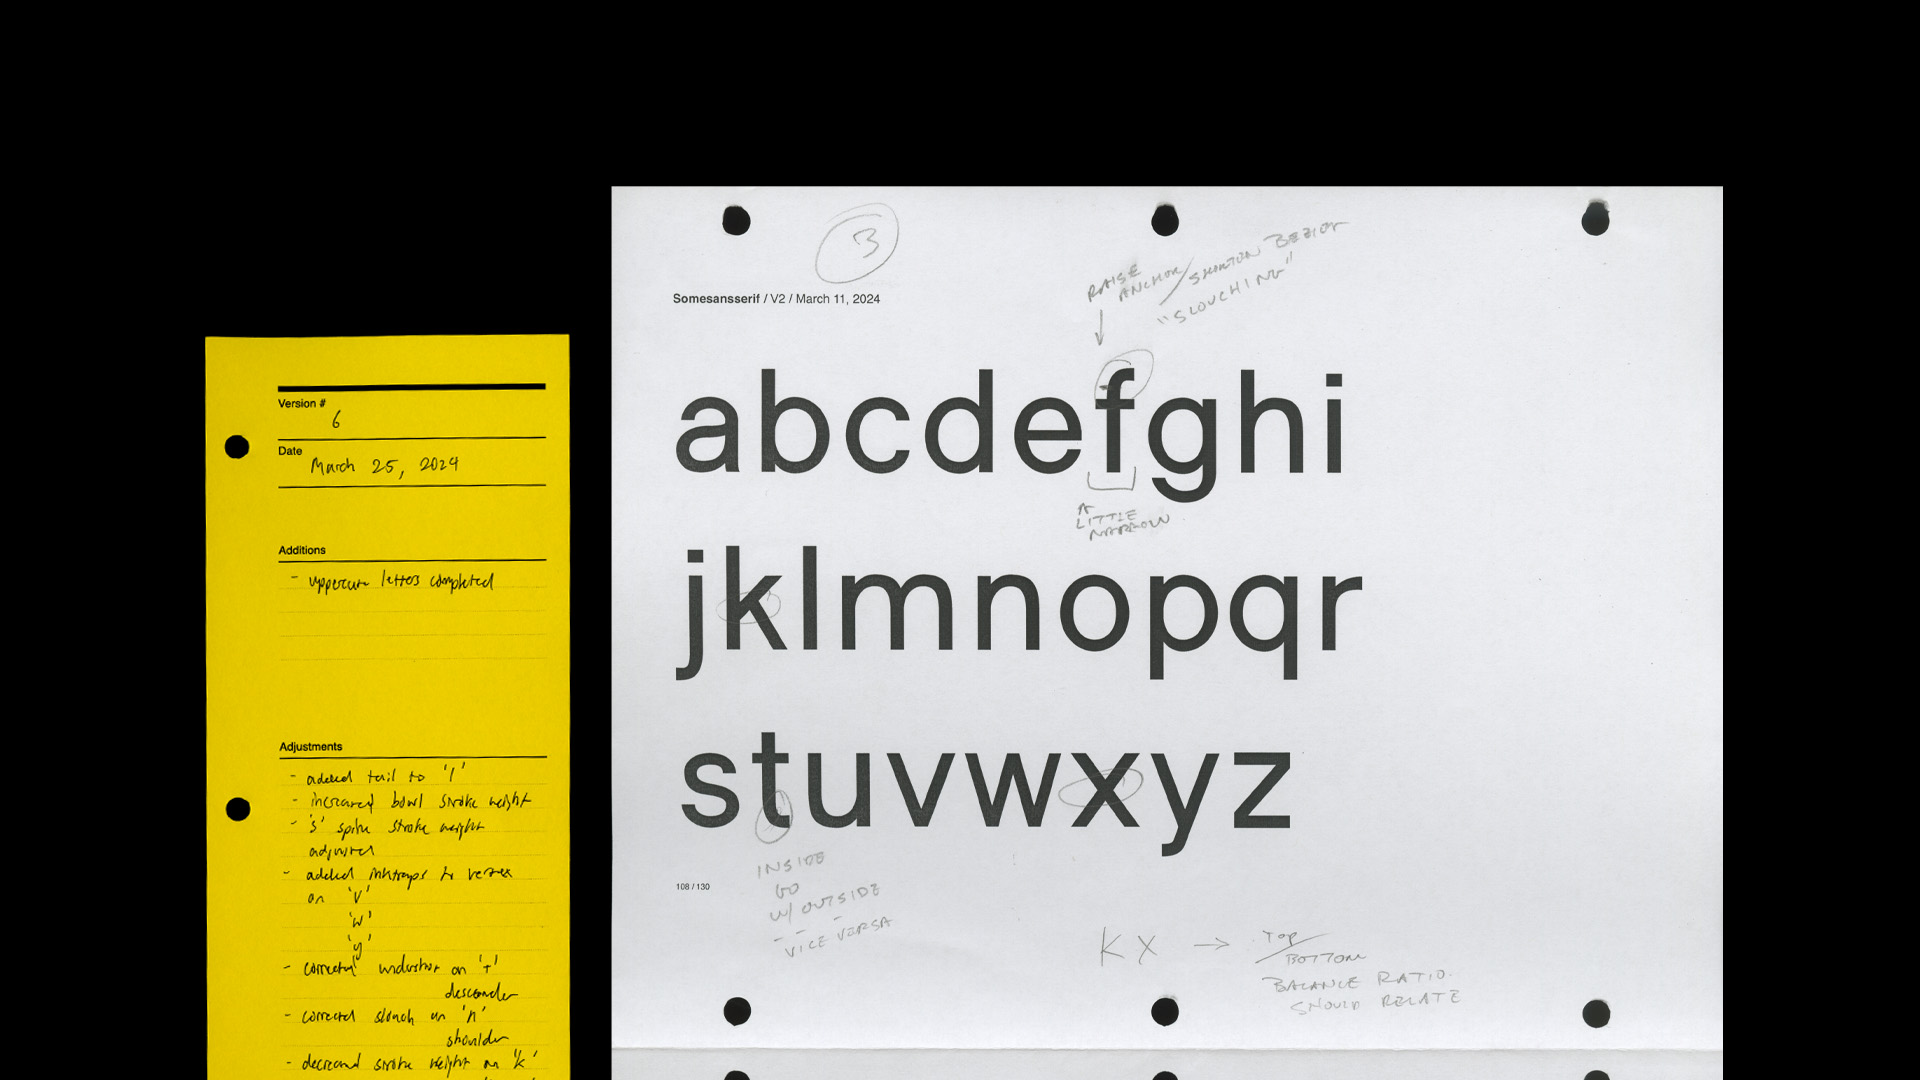 Version #
6
Date
March 25, 2024
Additions
- uppercase letters completed
Adjustments
- added tail to 'l'
- increased bowl stroke weight
- 's' spine stroke weight
adjusted
- added inktraps to vertex
on 'v'
'w'
'y'
- corrected undershot on 't'
descender
- corrected slouch on 'n'
shoulder
- decreased stroke weight on 'k'
3
Somesansserif / V2 / March 11, 2024
RAISE
ANCHOR / SHORTEN BEZIER
"SLOUCHING"
abcdefghi
A
LITTLE
NARROW
jklmnopqr
stuvwxyz
INSIDE
GO
W/ OUTSIDE
VICE VERSA
108 / 130
K X → TOP /
BOTTOM
BALANCE RATIO
SHOULD RELATE